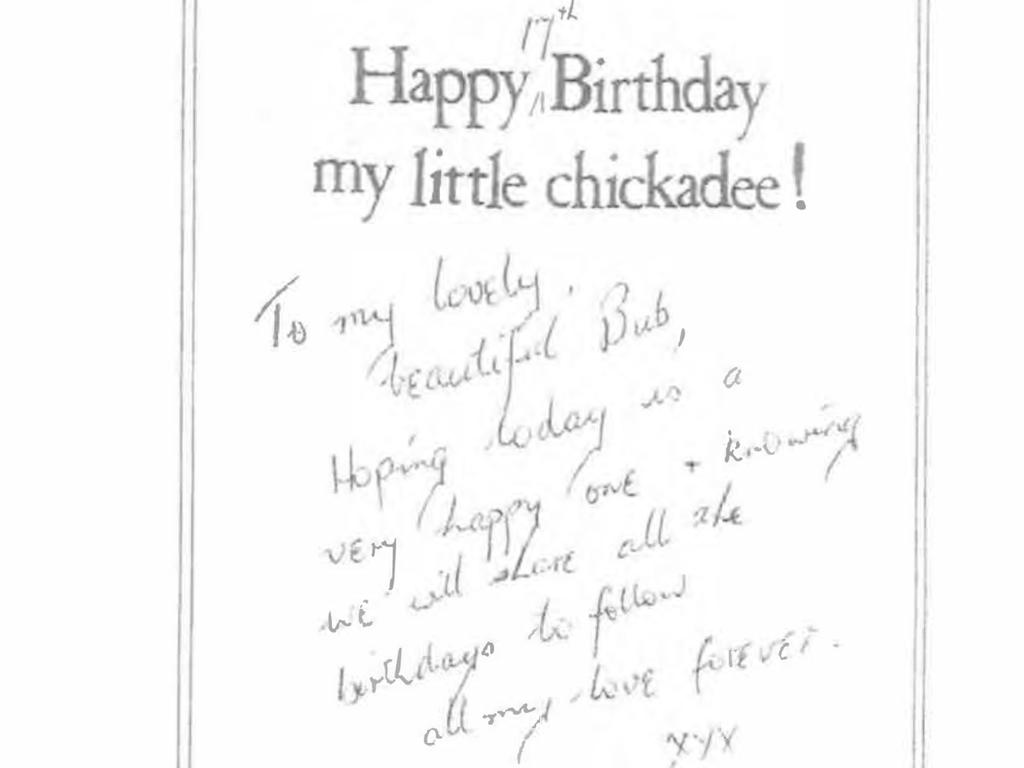 17th
Happy Birthday
my little chickadee!
To my lovely,
beautiful Bub,
Hoping today is a
very happy one + knowing
we will share all the
birthdays to follow
all my love forever.
xyx